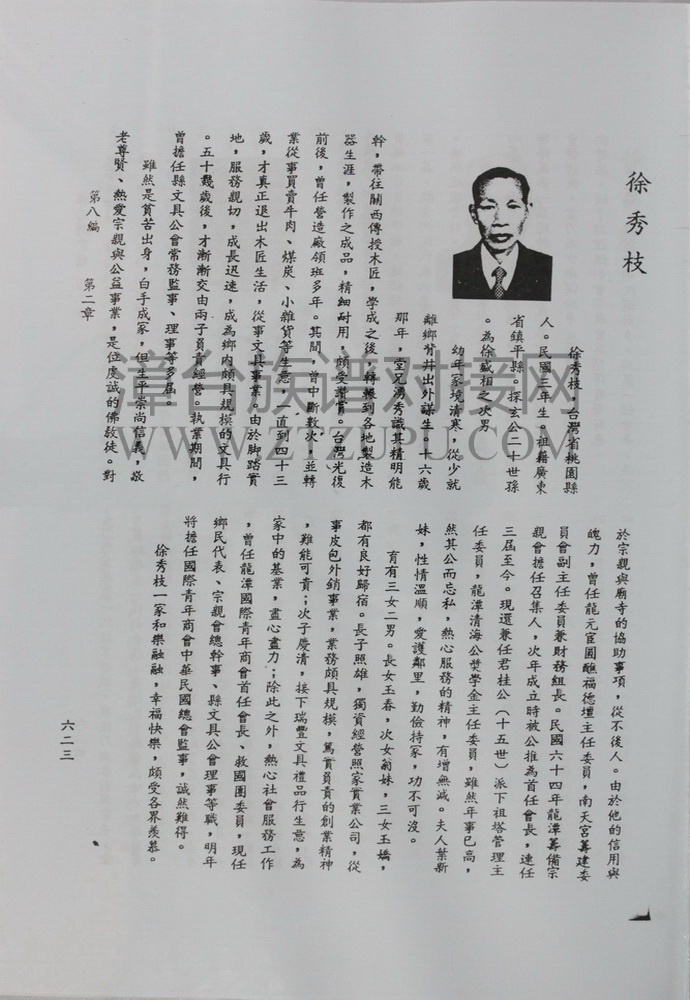 徐秀枝
徐秀枝，台灣省桃園縣
人。民國三年生。祖籍廣東
省鎮平縣。探玄公二十世孫
。為徐盛相之次男
幼年家境清寒，從少就
離鄉背井出外謀生。十六歲
那年，堂兄湧秀識其精明能
幹，帶往關西傳授木匠，學成之後，轉輾到各地製造木
器生涯，製作之成品，精細耐用，頗受讚賞。台灣光復
前後，曾任營造廠領班多年。其間，曾中斷數次，並轉
業從事買賣牛肉、煤炭、小雜貨等生意，一直到四十三
歲，才真正退出木匠生活，從事文具事業。由於脚踏實
地，服務親切，成長迅速，成為鄉內頗具規模的文具行
。五十幾歲後，才漸漸交由兩子負責經營。執業期間，
曾擔任縣文具公會常務監事、理事等多屆。
雖然是貧苦出身，白手成家，但生平崇尚信義，敬
老尊賢、熱愛宗親與公益事業，是位虔誠的佛敎徒。對
第八編　第二章
於宗親與廟寺的協助事項，從不後人。由於他的信用與
魄力，曾任龍元宮圓醮福德壇主任委員，南天宮籌建委
員會副主任委員兼財務組長。民國六十四年龍潭籌備宗
親會擔任召集人，次年成立時被公推為首任會長，連任
三屆至今。現還兼任君桂公（十五世）派下祖塔管理主
任委員，龍潭清海公奬學金主任委員，雖然年事已高，
然其公而忘私，熱心服務的精神，有增無減。夫人葉新
妹，性情溫順，愛護鄰里，勤儉持家，功不可沒。
育有三女二男。長女玉春，次女翁妹，三女玉嬌，
都有良好歸宿。長子照雄，獨資經營照家實業公司，從
事皮包外銷事業，業務頗具規模，篤實負責的創業精神
，難能可貴；次子慶清，接下瑞豐文具禮品行生意，為
家中的基業，盡心盡力；除此之外，熱心社會服務工作
，曾任龍潭國際青年商會首任會長、救國團委員，現任
鄉民代表、宗親會總幹事、縣文具公會理事等職，明年
將擔任國際青年商會中華民國總會監事，誠然難得。
徐秀枝一家和樂融融，幸福快樂，頗受各界羨慕。
六二三
章台族谱对接网
WWW.ZTZUPU.COM